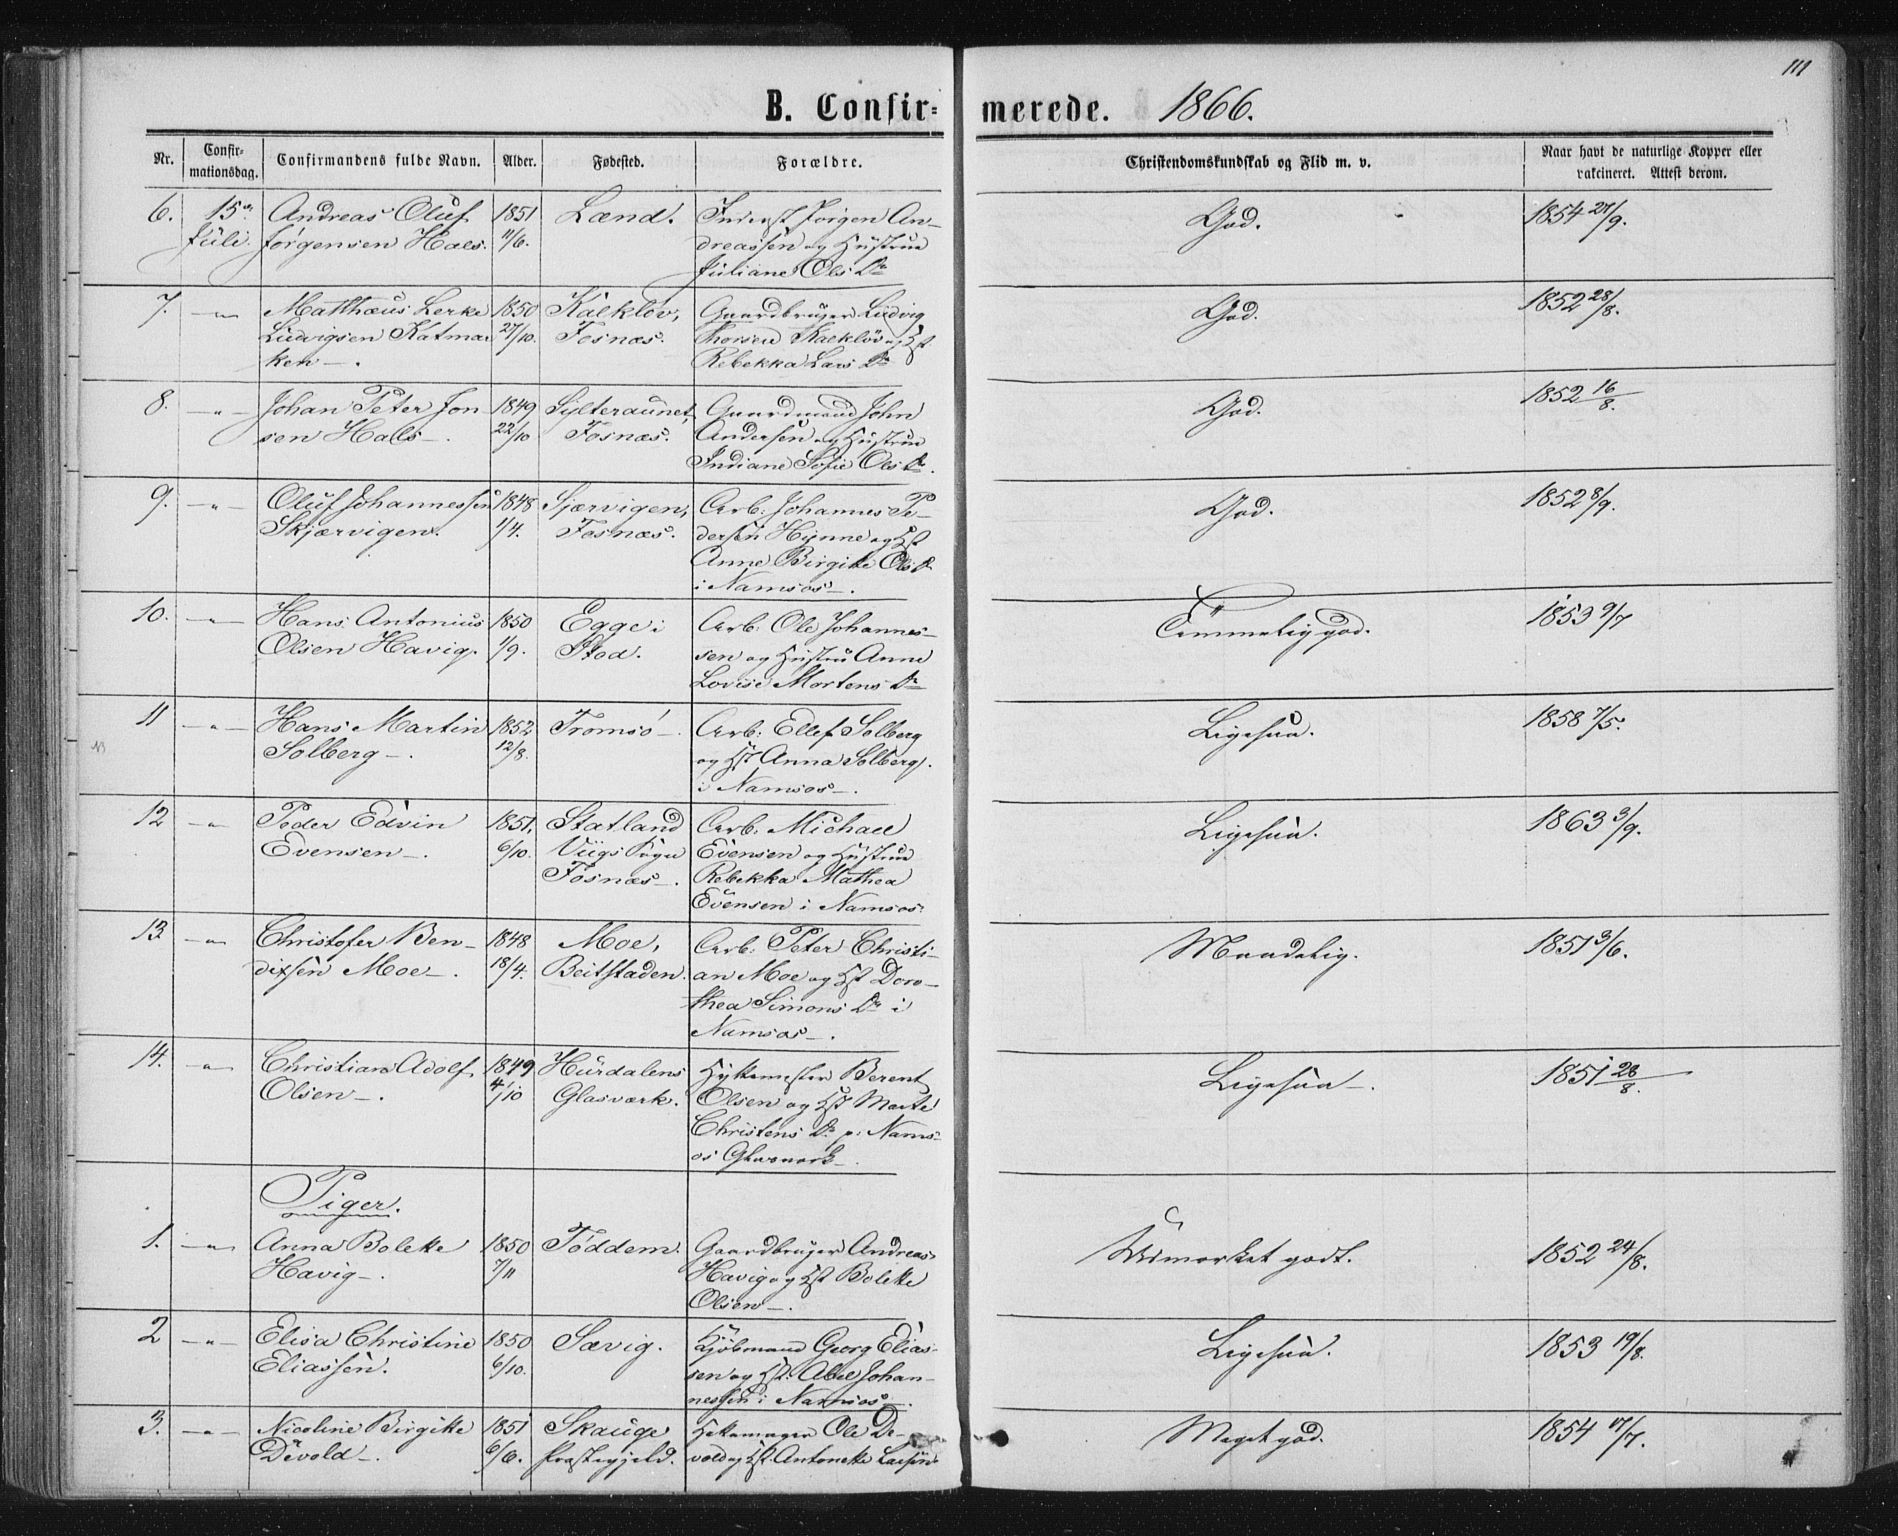 111
B. Confir= merede. 1866.
Nr. Confir-mationsdag. Confirmandens fulde Navn. Alder. Fødested. Forældre. Christendomskundskab og Flid m. v. Naar havt de naturlige Kopper eller vakcineret. Attest derom.
6. 15de Juli Andreas Oluf 1851 Lænd. Inderst Jørgen An-
Jørgensen Hals. 11/6. dreassen og Hustrue
Juliane Ols Dr
God. 1854 27/9.
7. -"- Matthæus Lerke 1850 Kalkløv, Gaardbruger Ludvig
Ludvigsen Katmar 27/10. Fosnæs. Thorsen Kalkløv og Hst
ken -. Rebekka Lars Dr
God. 1852 28/8.
8. -"- Johan Peter Jon 1849 Sylteraunet, Gaardmand John
sen Hals -. 22/10 Fosnæs. Andersen og Hustrue
Indiane Sofie Ols Dr.
God. 1852 16/8.
9. -"- Oluf Johannessen 1848 Sjærvigen, Arb: Johannes Pe-
Skjærvigen. 1/4. Fosnæs. dersen Hynne og Hst
Anne Birgitte Ols Dr
i Namsos -.
God. 1852 8/9.
10. -"- Hans Antonius 1850 Egge i Arb: Ole Johannes-
Olsen Havig. 1/9. Stod. sen og Hustru Anne
Lovise Mortens Dr
Temmelig god. 1853 9/7
11 -"- Hans Martin 1852 Tromsö -. Arb: Ellef Solberg
Solberg -. 12/8. og Hst Anna Solberg.
i Namsos -.
Ligesaa. 1858 7/5.
12 -"- Peder Edvin 1851. Statland Arb. Michael
Evensen -. 6/10. Viigs Sogn Evensen og Hustrue
Fosnæs -. Rebekka Mathea
Evensen i Namsos.
Ligesaa. 1863 3/9.
13. -"- Christofer Ben- 1848 Moe, Arb: Peter Christi-
dixsen Moe -. 18/4. Beitstaden. an Moe og Hst Doro-
thea Simons Dr i
Namsos -.
Maadelig. 1851 3/6.
14. -"- Christian Adolf 1849 Hurdalens Hyttemester Berent
Olsen -. 4/10 Glasværk. Olsen og Hst Marte
Christens Dr p: Nams-
os Glasværk -.
Ligesaa -. 1851 28/8.
Piger.
1. -"- Anna Bolette 1850 Töddem. Gaardbruger Andreas
Havig -. 7/11 Havig og Hst Bolette
Olsen -.
Udmærket godt. 1852 24/8.
2 -"- Elisa Christine 1850 Sævig. Kjöbmand Georg Elias-
Eliassen. 6/10. sen og Hst. Abel Johan-
nessen i Namsos -.
Ligesaa. 1853 19/8.
3. -"- Nicoline Birgitte 1851 Skauge Ole De-
Devold -. 6/6. Præstegjeld. vold og Hst. Antonette
Meget god. 1854 17/7.